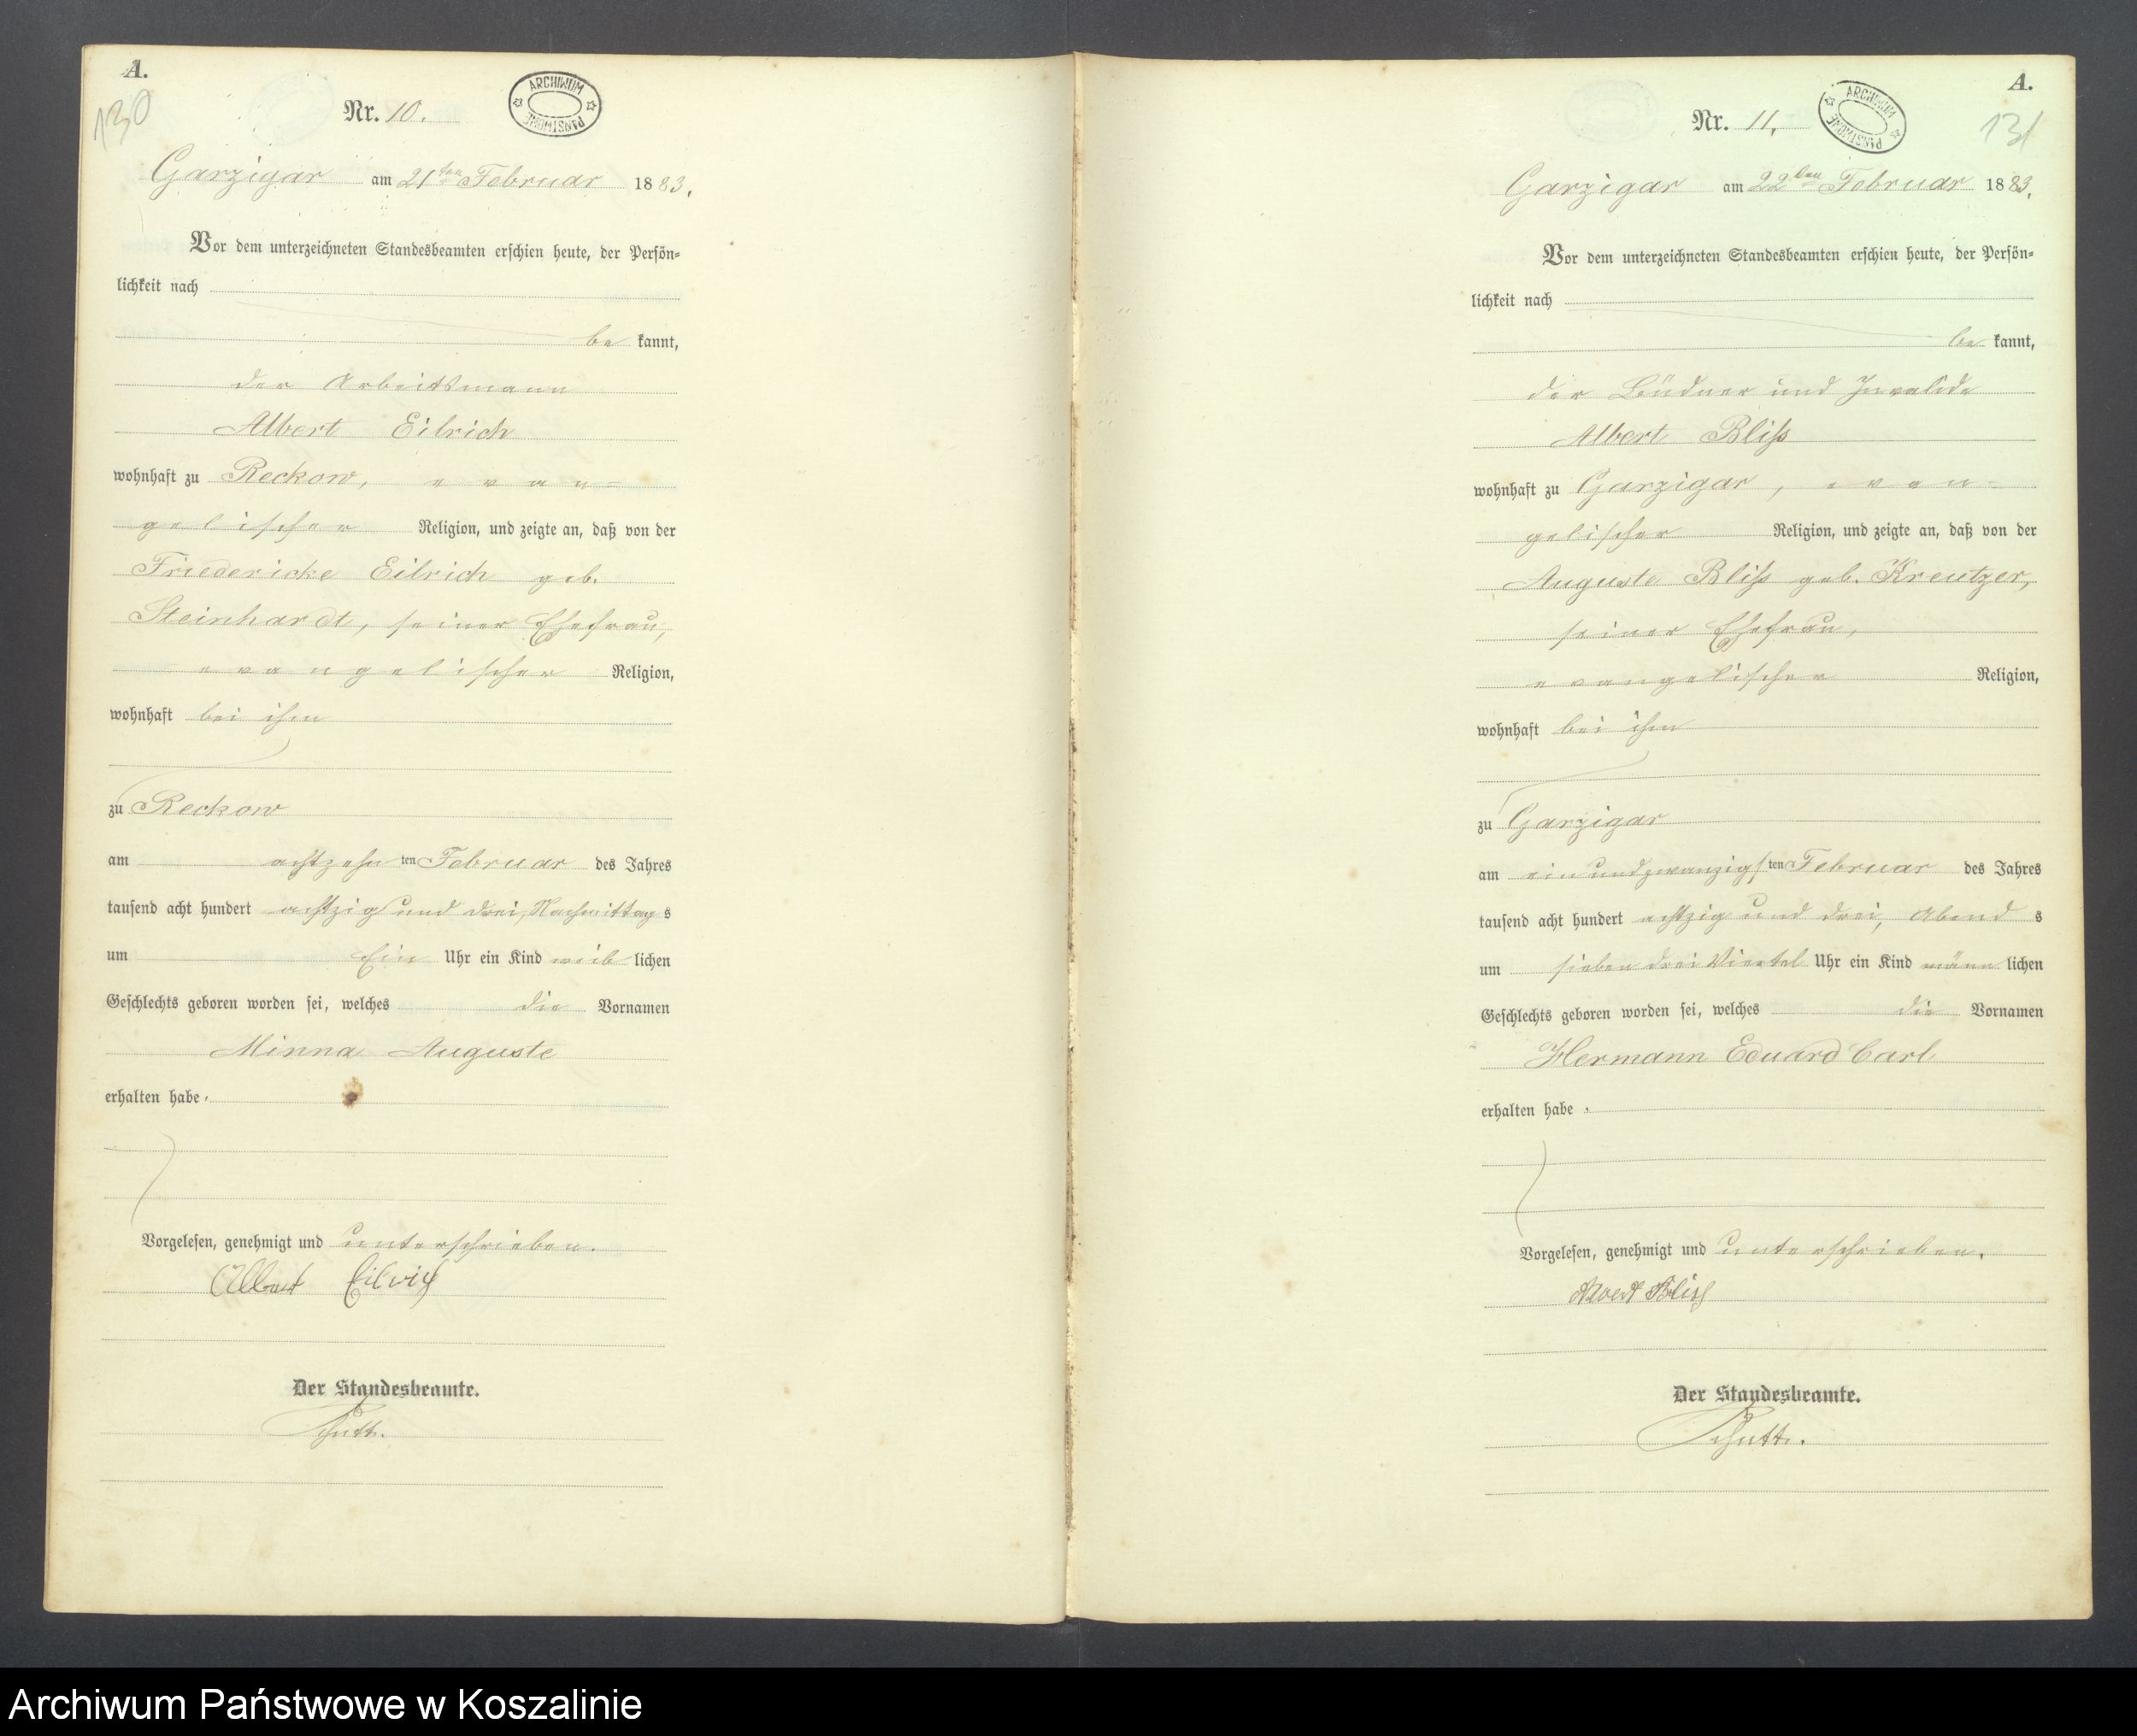 A.
130
Nr. 10.
ARCHIWUM PAŃSTWOWE
Garzigar am 21ten Februar 1883.
Vor dem unterzeichneten Standesbeamten erschien heute, der Persön=
lichkeit nach
be kannt,
der Arbeitsmann
Albert Eilrich
wohnhaft zu Reckow, evan=
gelischer Religion, und zeigte an, daß von der
Friedericke Eilrich geb.
Steinhardt, seiner Ehefrau,
evangelischer Religion,
wohnhaft bei ihm
zu Reckow
am achtzehn ten Februar des Jahres
tausend acht hundert achtzig und drei, Nachmittag s
um Ein Uhr ein Kind weib lichen
Geschlechts geboren worden sei, welches die Vornamen
Minna Auguste
erhalten habe.
Vorgelesen, genehmigt und unterschrieben.
Albert Eilrich
Der Standesbeamte.
A.
131
Nr. 11.
ARCHIWUM PAŃSTWOWE
Garzigar am 22ten Februar 1883.
Vor dem unterzeichneten Standesbeamten erschien heute, der Persön=
lichkeit nach
be kannt,
der Büdner und Invalide
Albert Bliß
wohnhaft zu Garzigar, evan=
gelischer Religion, und zeigte an, daß von der
Auguste Bliß geb. Kreutzer,
seiner Ehefrau,
evangelischer Religion,
wohnhaft bei ihm
zu Garzigar
am einundzwanzigs ten Februar des Jahres
tausend acht hundert achtzig und drei, Abend s
um sieben drei Viertel Uhr ein Kind männ lichen
Geschlechts geboren worden sei, welches die Vornamen
Hermann Eduard Carl
erhalten habe.
Vorgelesen, genehmigt und unterschrieben.
Albert Bliß
Der Standesbeamte.
Archiwum Państwowe w Koszalinie